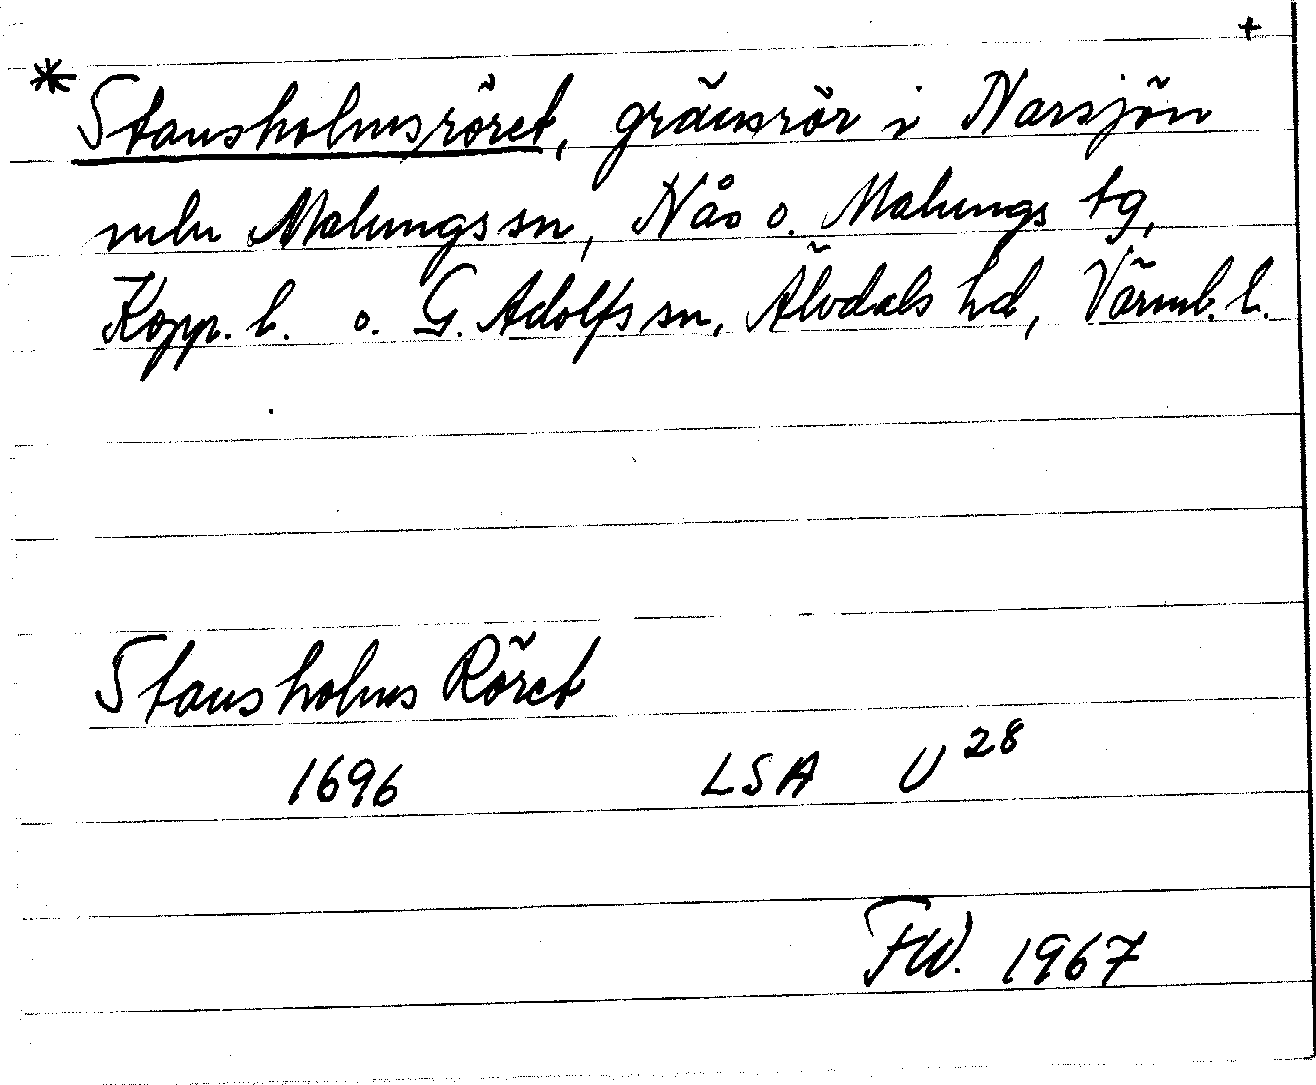 +
* Stausholmsröret, gränsrör i Narsjön
mln Malungs sn, Nås o. Malungs tg,
Kopp. l. o. G. Adolfs sn, Älvdals hd, Värml. l.
Stausholms Röret
1696 LSA U 28
FW. 1967